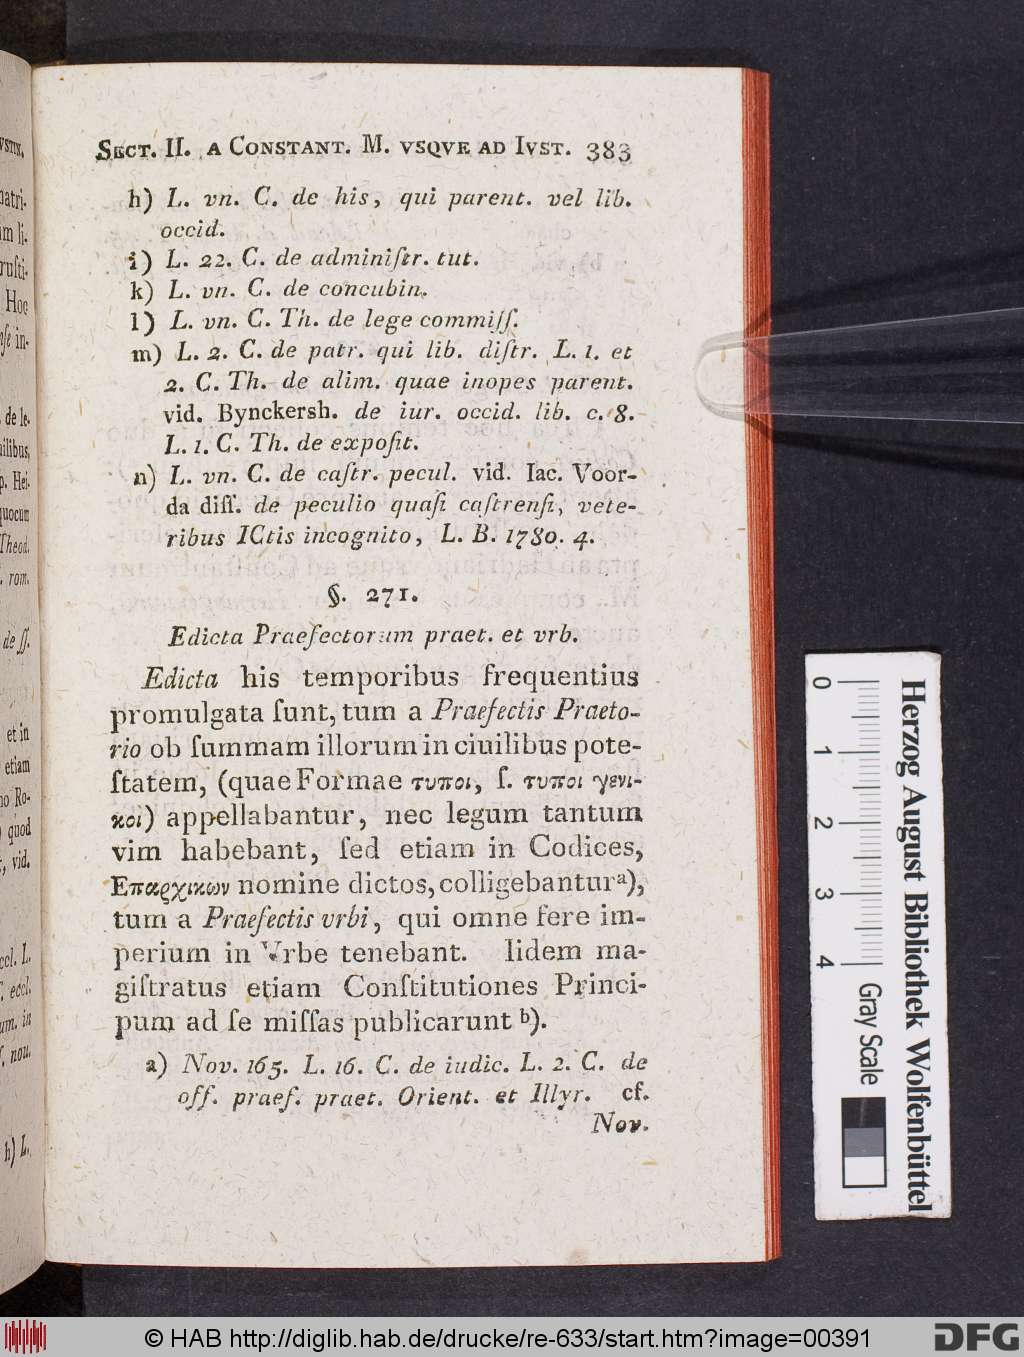 Sect. II. a Constant. M. vsqve ad Ivst. 383
h) L. vn. C. de his, qui parent. vel lib.
occid.
i) L. 22. C. de adminiſtr. tut.
k) L. vn. C. de concubin.
l) L. vn. C. Th. de lege commiſſ.
m) L. 2. C. de patr. qui lib. diſtr. L. 1. et
2. C. Th. de alim. quae inopes parent.
vid. Bynckersh. de iur. occid. lib. c. 8.
L. 1. C. Th. de expoſit.
n) L. vn. C. de caſtr. pecul. vid. Iac. Voor-
da diſſ. de peculio quaſi caſtrenſi, vete-
ribus ICtis incognito, L. B. 1780. 4.
§. 271.
Edicta Praefectorum praet. et vrb.
Edicta his temporibus frequentius
promulgata ſunt, tum a Praefectis Praeto-
rio ob ſummam illorum in ciuilibus pote-
ſtatem, (quae Formae τυποι, ſ. τυποι γενι-
κοι) appellabantur, nec legum tantum
vim habebant, ſed etiam in Codices,
Επαρχικων nomine dictos, colligebantur a),
tum a Praefectis vrbi, qui omne fere im-
perium in Vrbe tenebant. Iidem ma-
giſtratus etiam Conſtitutiones Princi-
pum ad ſe miſſas publicarunt b).
a) Nov. 165. L. 16. C. de iudic. L. 2. C. de
off. praef. praet. Orient. et Illyr. cf.
Nov.
vstin.
patri-
m li-
ruſti-
Hoc
in-
de le-
ilibus,
p. Hei-
quocum
Theod.
rom.
de ſſ.
et in
etiam
no Ro-
quod
vid.
ccl. L.
eccl.
um. in
nou.
h) L.
0 1 2 3 4
Herzog August Bibliothek Wolfenbüttel
Gray Scale
© HAB http://diglib.hab.de/drucke/re-633/start.htm?image=00391
DFG